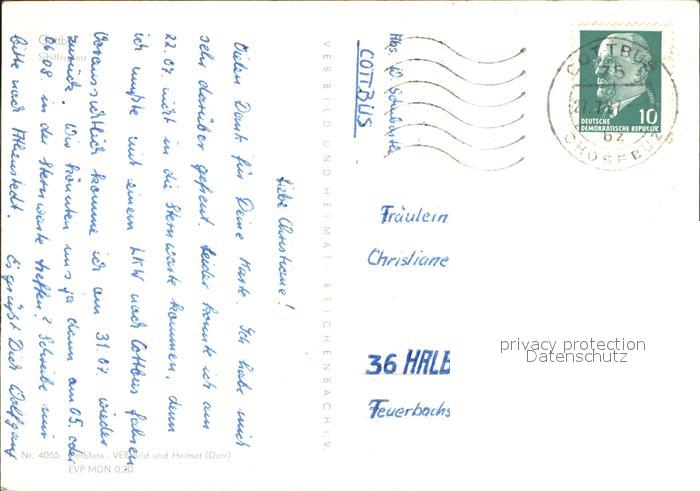 Liebe Christiane!
Vielen Dank für Deine Karte. Ich habe mich
sehr darüber gefreut. Leider konnte ich am
22.07. nicht in die Sternwarte kommen, denn
ich mußte mit einem LKW nach Cottbus fahren
Voraussichtlich komme ich am 31.07. wieder
zurück! Wir könnten uns ja dann am 05. oder
06.08 in der Sternwarte treffen? Schreibe mir
bitte nach Athenstedt.
Es grüßt Dich Wolfgang
Cottbus
Nr. 4065 Farbfoto: VEB Bild und Heimat (Darr)
EVP MDN 0.20
VEB BILD UND HEIMAT · REICHENBACH I. V.
Abs.
COTTBUS
COTTBUS
75
62
CHOSEBUZ
10
DEUTSCHE
DEMOKRATISCHE REPUBLIK
Fräulein
Christiane
36 HALB
Feuerbachs
privacy protection
Datenschutz